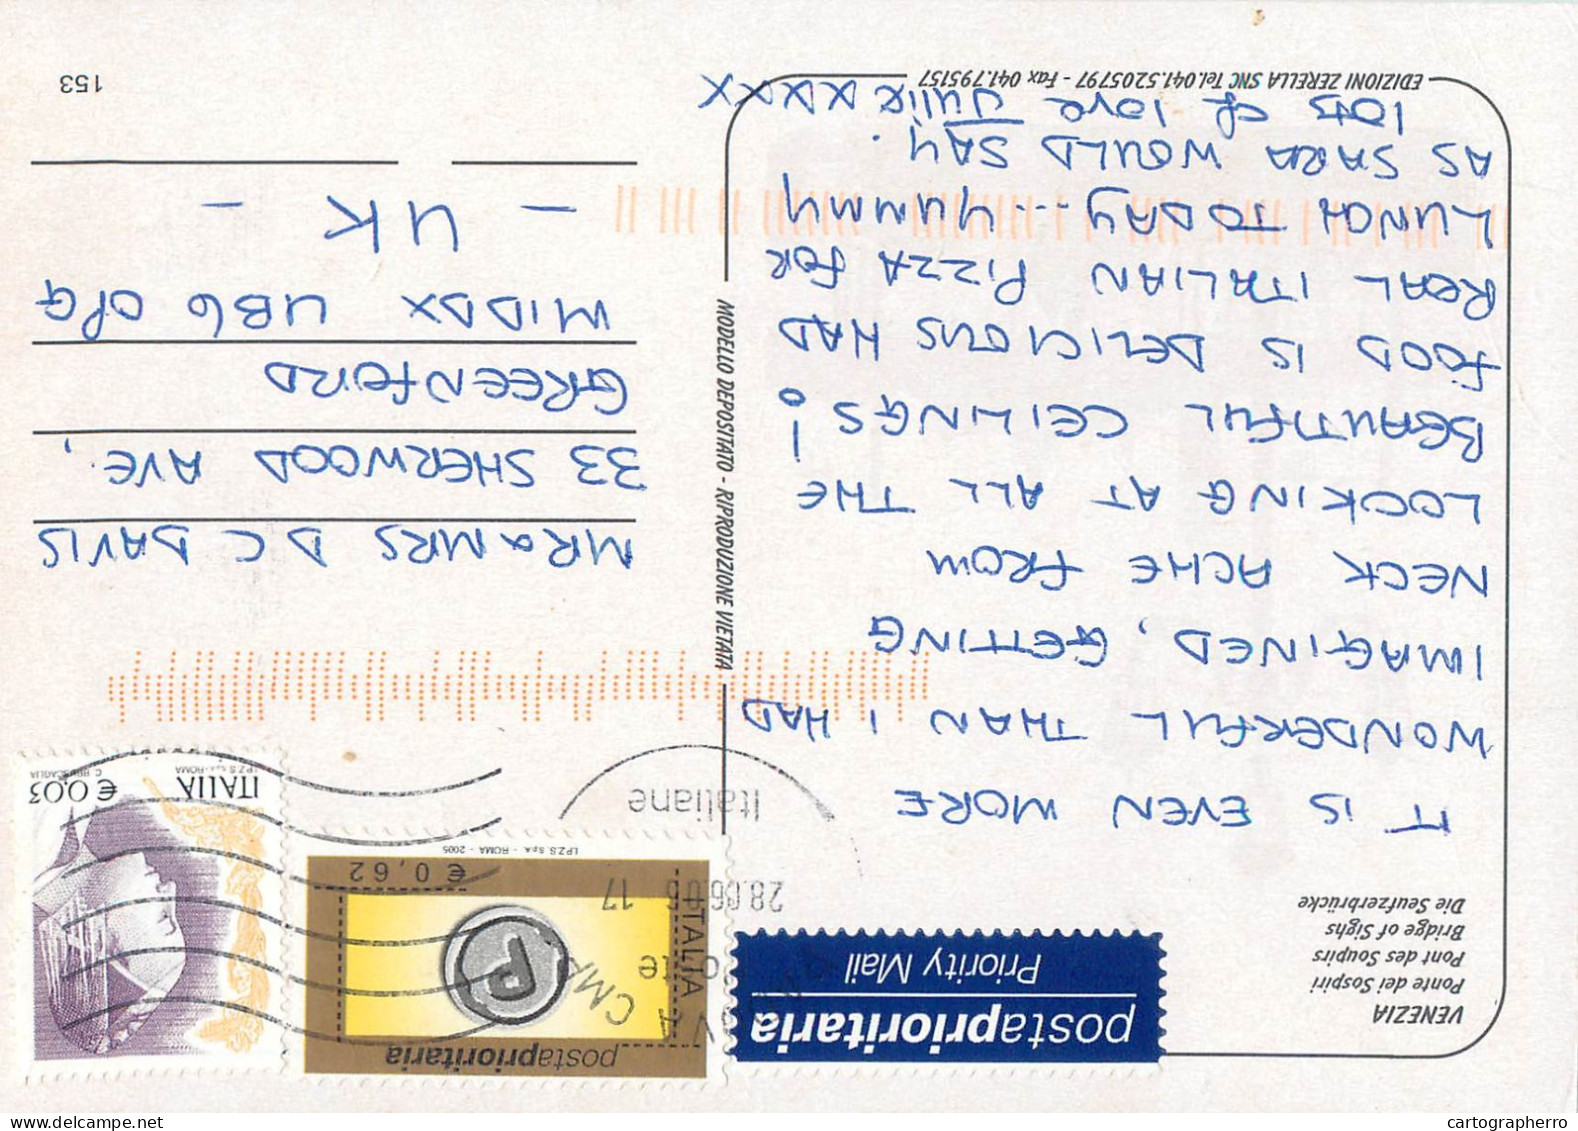 VENEZIA
Ponte dei Sospiri
Pont des Soupirs
Bridge of Sighs
Die Seufzerbrücke
postaprioritaria
Priority Mail
postaprioritaria
ITALIA
P
€ 0,62
I.P.Z.S. S.p.A. - ROMA - 2005
ITALIA
€ 0,03
I.P.Z.S. S.p.A. - ROMA
CMP
Poste
28.06.06 17
Italiane
IT IS EVEN MORE
WONDERFUL THAN I HAD
IMAGINED, GETTING
NECK ACHE FROM
LOOKING AT ALL THE
BEAUTIFUL CEILINGS!
FOOD IS DELICIOUS HAD
REAL ITALIAN PIZZA FOR
LUNCH TODAY... YUMMY
AS SARA WOULD SAY.
lots of love Julie XXXX
EDIZIONI ZERELLA SNC Tel.041.5205797 - Fax 041.795157
MODELLO DEPOSITATO - RIPRODUZIONE VIETATA
MR & MRS D C DAVIS
33 SHERWOOD AVE,
GREENFORD
MIDDX UB6 0PG
- UK -
153
cartographerro